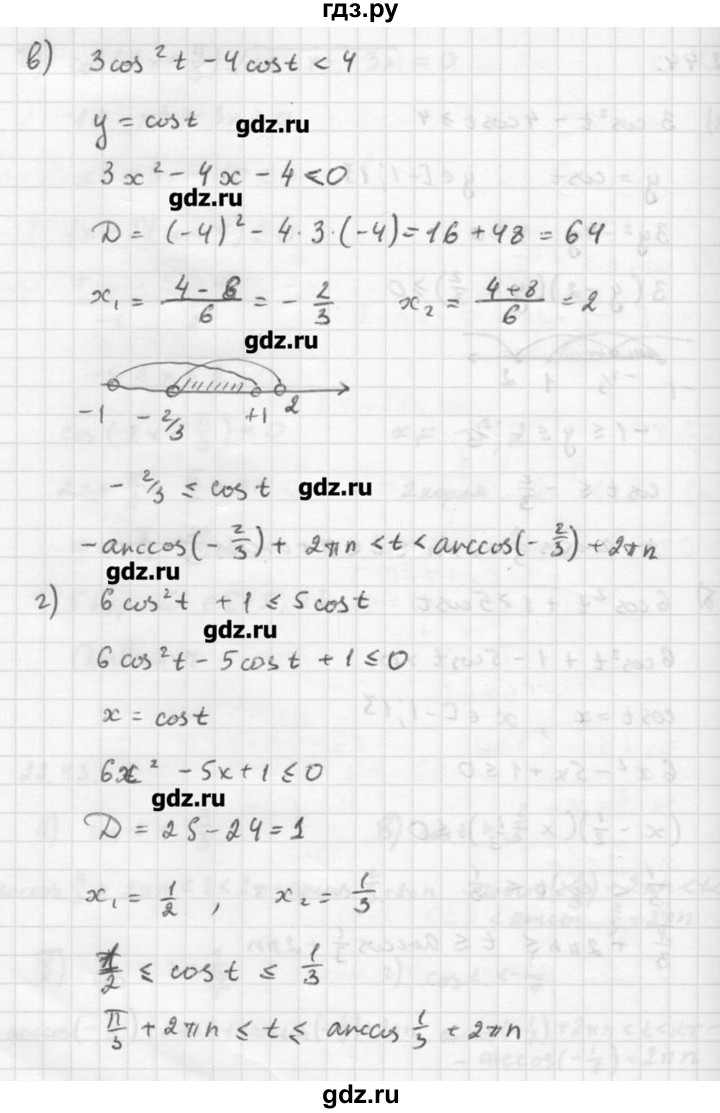 гдз.ру
в) 3cos²t - 4cost < 4
y = cost
gdz.ru
3x² - 4x - 4 < 0
gdz.ru
D = (-4)² - 4·3·(-4) = 16 + 48 = 64
x₁ = (4 - 8)/6 = - 2/3 x₂ = (4+8)/6 = 2
gdz.ru
-1 - 2/3 +1 2
- 2/3 ≤ cost
gdz.ru
-arccos(- 2/3) + 2πn < t < arccos(- 2/3) + 2πn
gdz.ru
г) 6cos²t + 1 ≤ 5cost
gdz.ru
6cos²t - 5cost + 1 ≤ 0
x = cost
6x² - 5x + 1 ≤ 0
gdz.ru
D = 25 - 24 = 1
x₁ = 1/2 , x₂ = 1/3
1/2 ≤ cost ≤ 1/3
π/3 + 2πn ≤ t ≤ arccos 1/3 + 2πn
gdz.ru